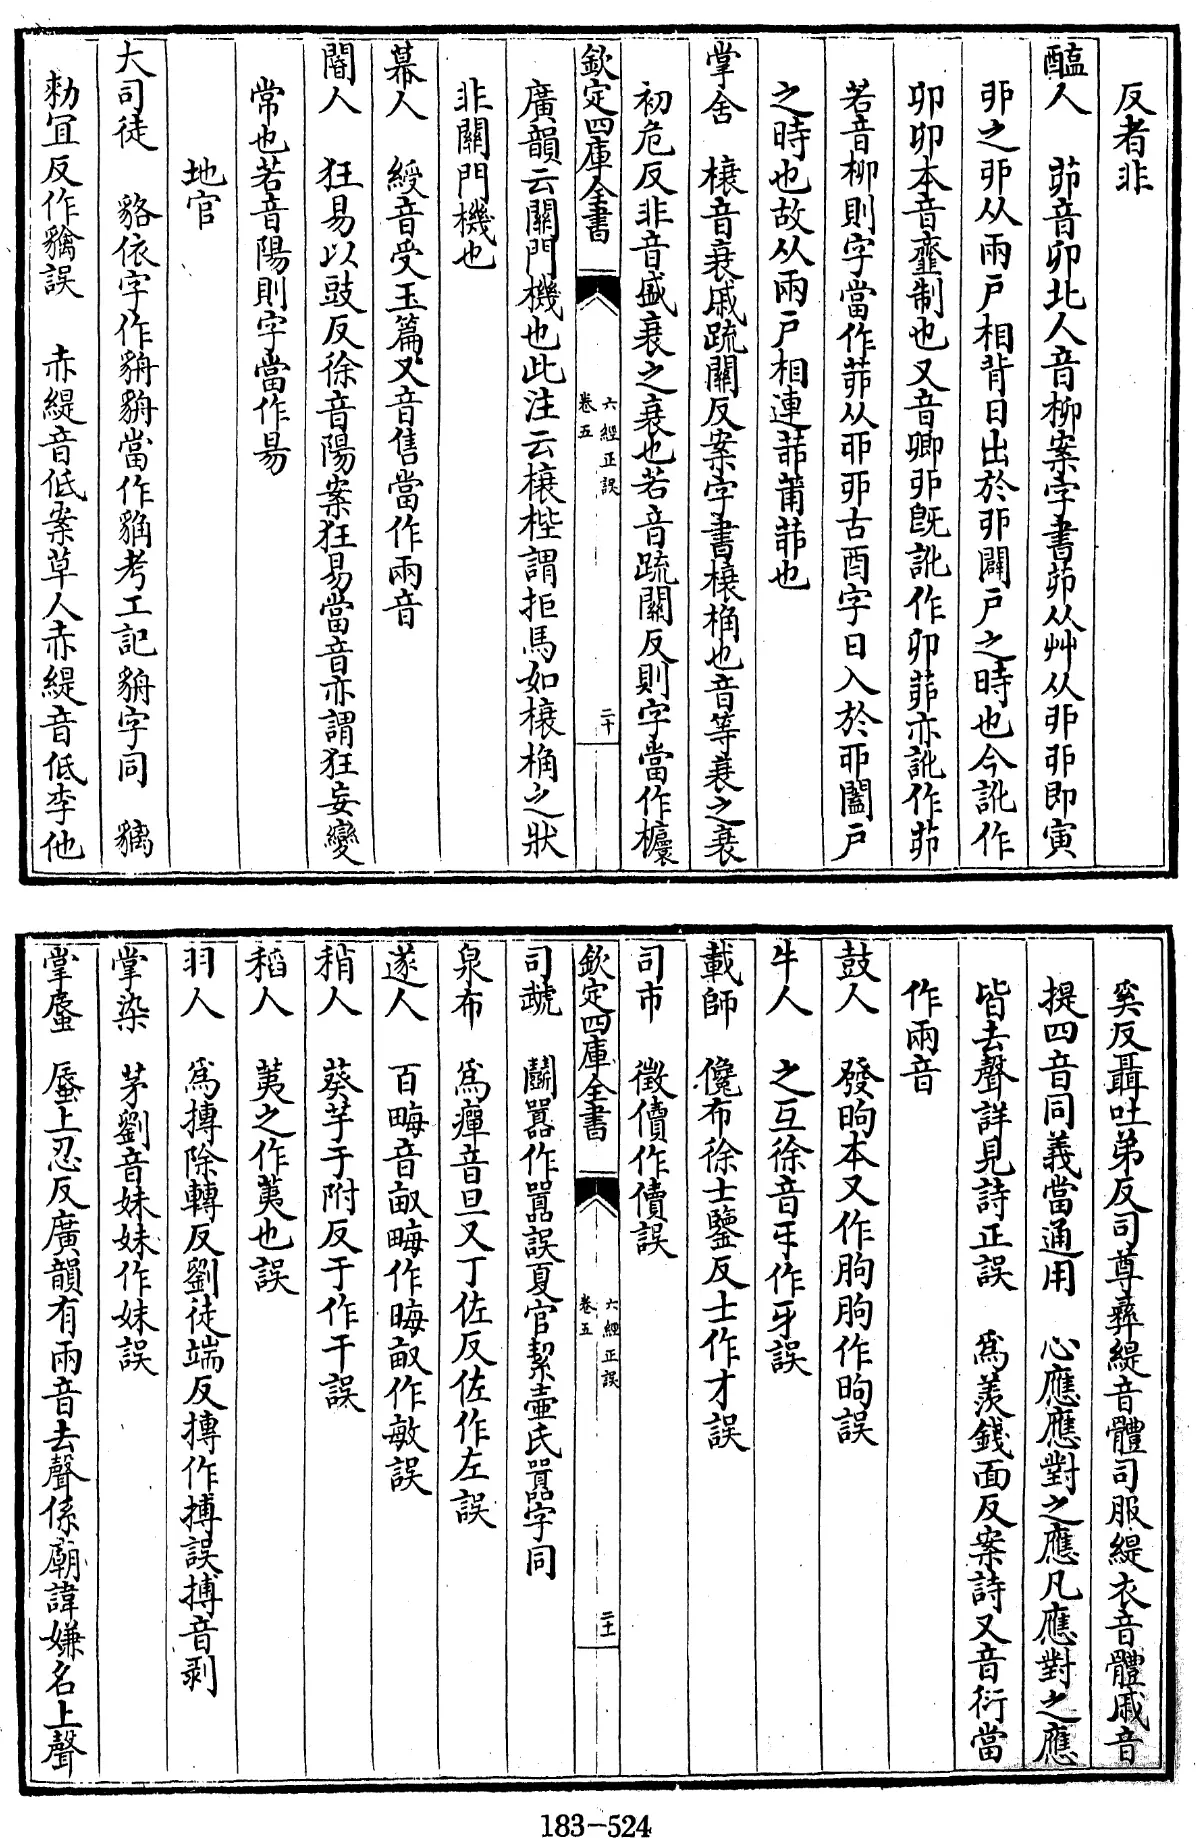 反者非
醢人 茆音卯北人音柳案字書茆从艸从戼戼即寅
戼之戼从兩戶相背日出於戼闢戶之時也今訛作
卯卯本音𨜓制也又音卿戼既訛作卯茆亦訛作茆
若音柳則字當作茆从丣丣古酉字日入於丣闔戶
之時也故从兩戶相連茆莆茆也
掌舍 榱音衰戚疏關反案字書榱桷也音等衰之衰
初危反非音盛衰之衰也若音疏關反則字當作櫦
欽定四庫全書 卷五 六經正誤 二十
廣韻云關門機也此注云榱梐謂拒馬如榱桷之狀
非關門機也
幕人 綬音受玉篇又音售當作兩音
閽人 狂易以豉反徐音陽案狂易當音亦謂狂妄變
常也若音陽則字當作昜
地官
大司徒 貉依字作貈貈當作貈考工記貈字同 貓
勑宜反作貓誤 赤緹音低案草人赤緹音低李他
奚反聶吐弟反司尊彝緹音體司服緹衣音體戚音
提四音同義當通用 心應應對之應凡應對之應
皆去聲詳見詩正誤 爲羨錢面反案詩又音衍當
作兩音
鼓人 發昫本又作胊胊作昫誤
牛人 之互徐音乎作牙誤
載師 儳布徐士鑒反士作才誤
司市 徵儥作價誤
欽定四庫全書 卷五 六經正誤 二十一
司虣 鬭囂作嚚誤夏官絜壷氏嚚字同
泉布 爲癉音旦又丁佐反佐作左誤
遂人 百畮音畝畮作晦畝作敏誤
稍人 葵芋于附反于作干誤
稻人 荑之作荑也誤
羽人 爲摶除轉反劉徒端反摶作搏誤搏音剥
掌染 茅劉音妹妹作妺誤
掌蜃 蜃上忍反廣韻有兩音去聲係廟諱嫌名上聲
183-524